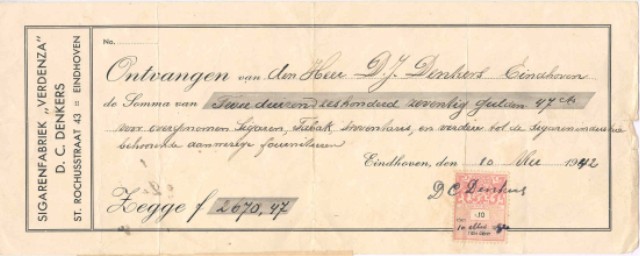 SIGARENFABRIEK „VERDENZA”
D. C. DENKERS
ST. ROCHUSSTRAAT 43 = EINDHOVEN
No.
Ontvangen van den Heer D.J. Denkers Eindhoven
de Somma van Twee duizend zeshonderd zeventig gulden 47 cts
voor overgenomen Sigaren, Tabak, Inventaris, en verdere tot de sigarenindustrie
behoorende aanwezige fournituren
Eindhoven, den 10 Mei 1942
D C Denkers
Zegge f 2670,47
10
10 Mei